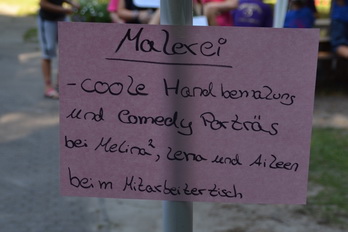 Malerei
- coole Handbemalung
und Comedy Porträs
bei Melina², Lena und Aileen
beim Mitarbeitertisch